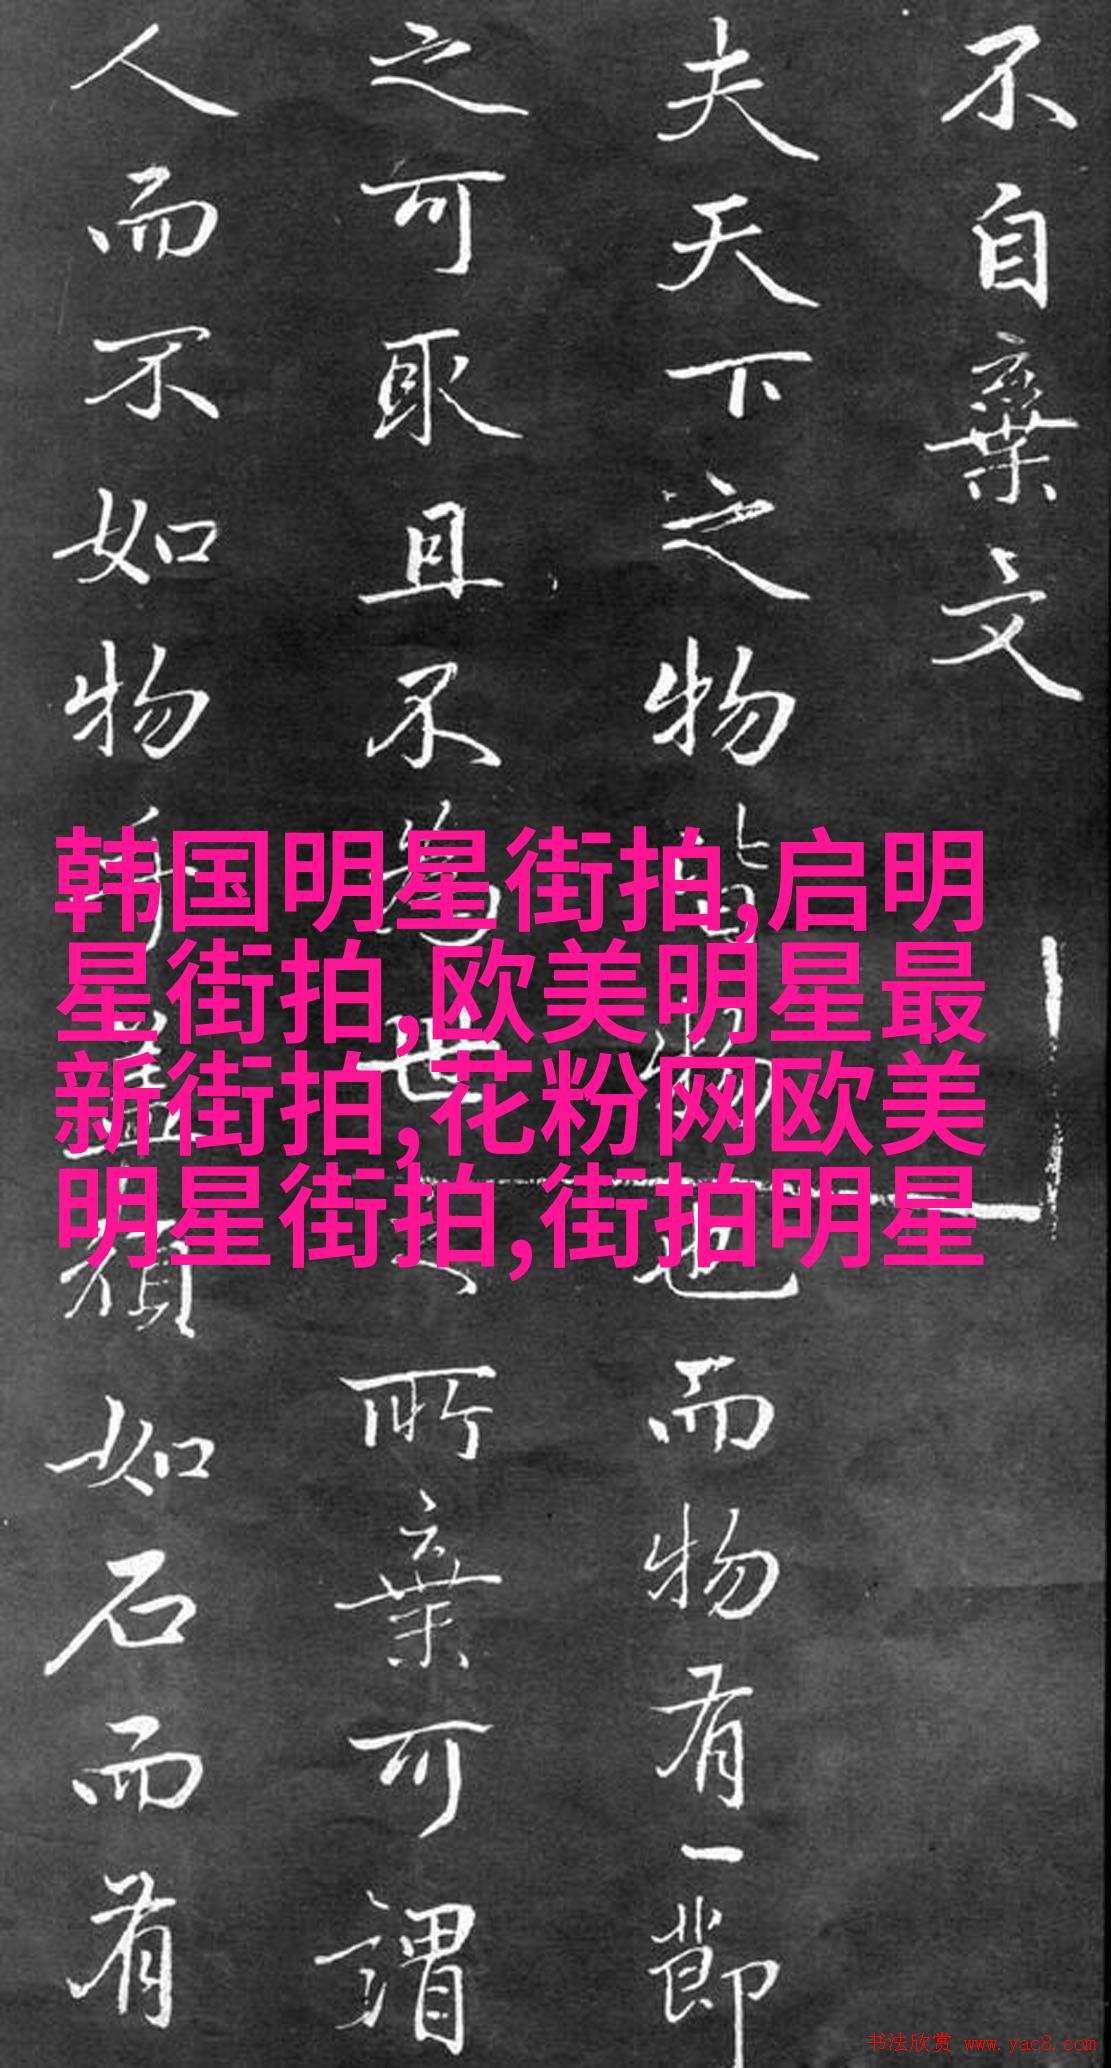 不自棄文
夫天下之物皆物也而物有一節
之可取且不為世之所棄可謂
人而不如物乎蓋頑如石而有
韩国明星街拍,启明
星街拍,欧美明星最
新街拍,花粉网欧美
明星街拍,街拍明星
书法欣赏 www.yac8.com